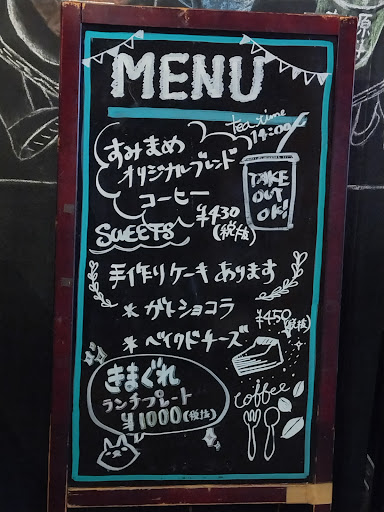 MENU
tea time
14:00~
すみまめ
オリジナルブレンド
コーヒー
¥430
(税抜)
TAKE
OUT
OK!
SWEETS
手作りケーキあります
* ガトショコラ
* ベイクドチーズ
¥450(税抜)
きまぐれ
ランチプレート
¥1000(税抜)
coffee